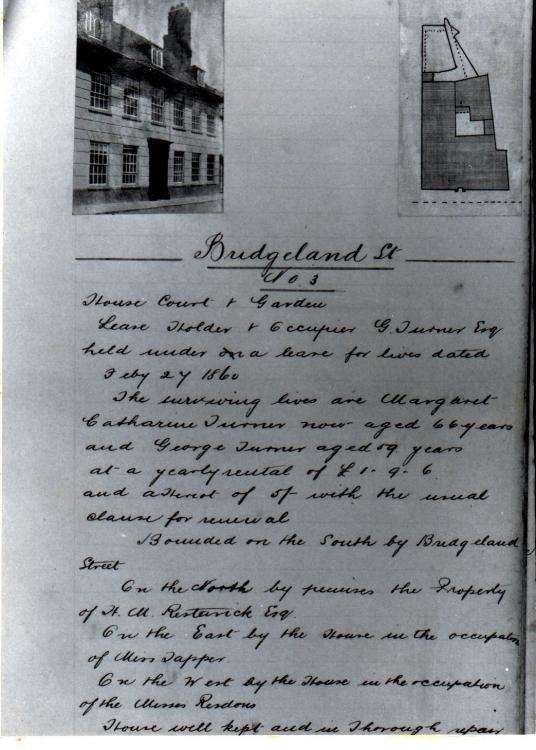 Bridgeland St
No 3
House Court & Garden
Lease Holder & Occupier G. Turner Esq
held under on a lease for lives dated
Feby 27 1860
The surviving lives are Margaret
Catharine Turner now aged 66 years
and George Turner aged 59 years
at a yearly rental of £1-9-6
and a Heriot of 5/- with the usual
clause for renewal
Bounded on the South by Bridgeland
Street
On the North by premises the Property
of H. M. Restarick Esq
On the East by the House in the occupation
of Miss Tapper.
On the West by the House in the occupation
of the Misses Risdons
House well kept and in Thorough repair